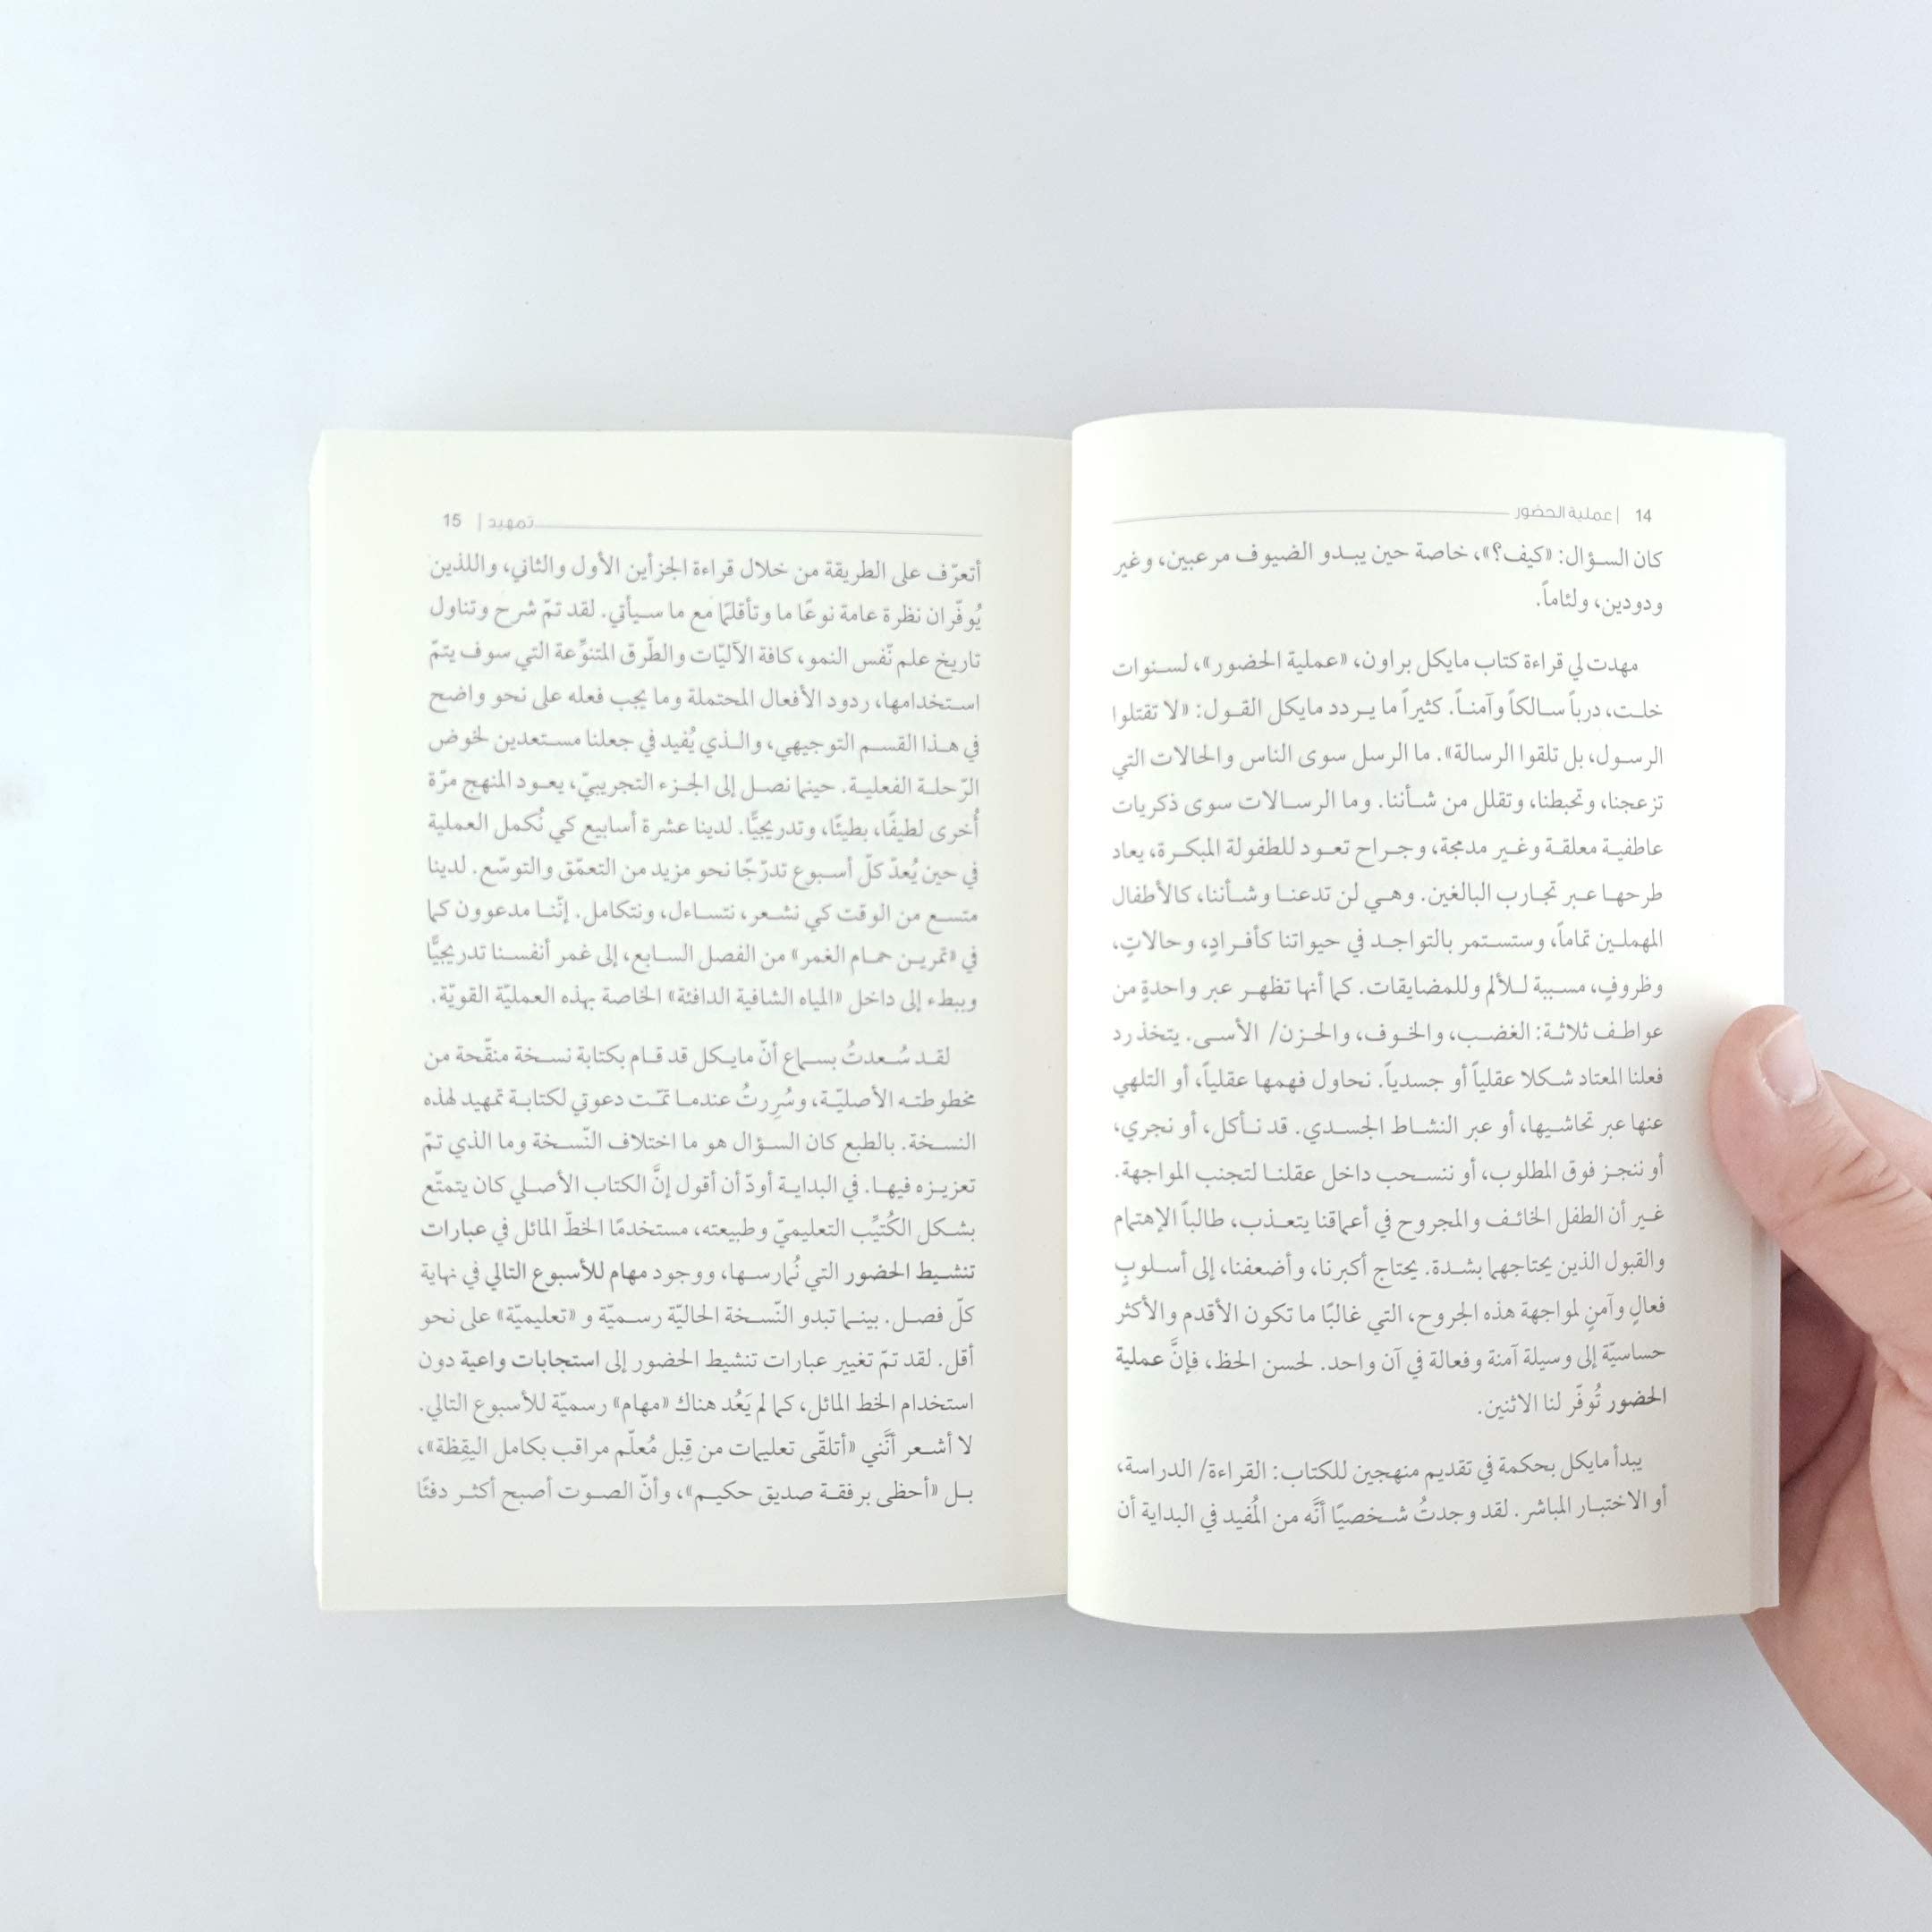 14 | عملية الحضور
كان السؤال: «كيف؟»، خاصة حين يبدو الضيوف مرعبين، وغير
ودودين، ولئاماً.
مهدت لي قراءة كتاب مايكل براون، «عملية الحضور»، لسنوات
خلت، درباً سالكاً وآمناً. كثيراً ما يردد مايكل القول: «لا تقتلوا
الرسول، بل تلقوا الرسالة». ما الرسل سوى الناس والحالات التي
تزعجنا، وتحبطنا، وتقلل من شأننا. وما الرسالات سوى ذكريات
عاطفية معلقة وغير مدمجة، وجراح تعود للطفولة المبكرة، يعاد
طرحها عبر تجارب البالغين. وهي لن تدعنا وشأننا، كالأطفال
المهملين تماماً، وستستمر بالتواجد في حيواتنا كأفرادٍ، وحالاتٍ،
وظروفٍ، مسببة للألم وللمضايقات. كما أنها تظهر عبر واحدةٍ من
عواطف ثلاثة: الغضب، والخوف، والحزن/ الأسى. يتخذ رد
فعلنا المعتاد شكلا عقلياً أو جسدياً. نحاول فهمها عقلياً، أو التلهي
عنها عبر تحاشيها، أو عبر النشاط الجسدي. قد نأكل، أو نجري،
أو ننجز فوق المطلوب، أو ننسحب داخل عقلنا لتجنب المواجهة.
غير أن الطفل الخائف والمجروح في أعماقنا يتعذب، طالباً الإهتمام
والقبول الذين يحتاجهما بشدة. يحتاج أكبرنا، وأضعفنا، إلى أسلوبٍ
فعالٍ وآمنٍ لمواجهة هذه الجروح، التي غالبًا ما تكون الأقدم والأكثر
حساسيّة إلى وسيلة آمنة وفعالة في آن واحد. لحسن الحظ، فإنَّ عملية
الحضور تُوفّر لنا الاثنين.
يبدأ مايكل بحكمة في تقديم منهجين للكتاب: القراءة/ الدراسة،
أو الاختبار المباشر. لقد وجدتُ شخصيًا أنَّه من المُفيد في البداية أن
تمهيد | 15
أتعرّف على الطريقة من خلال قراءة الجزأين الأول والثاني، واللذين
يُوفّران نظرة عامة نوعًا ما وتأقلمًا مع ما سيأتي. لقد تمّ شرح وتناول
تاريخ علم نّفس النمو، كافة الآليّات والطّرق المتنوِّعة التي سوف يتمّ
استخدامها، ردود الأفعال المحتملة وما يجب فعله على نحو واضح
في هذا القسم التوجيهي، والذي يُفيد في جعلنا مستعدين لخوض
الرّحلة الفعلية. حينما نصل إلى الجزء التجريبيّ، يعود المنهج مرّة
أُخرى لطيفًا، بطيئًا، وتدريجيًّا. لدينا عشرة أسابيع كي نُكمل العملية
في حين يُعدّ كلّ أسبوع تدرّجًا نحو مزيد من التعمّق والتوسّع. لدينا
متسع من الوقت كي نشعر، نتساءل، ونتكامل. إنّنا مدعوون كما
في «تمرين حمام الغمر» من الفصل السابع، إلى غمر أنفسنا تدريجيًّا
وببطء إلى داخل «المياه الشافية الدافئة» الخاصة بهذه العمليّة القويّة.
لقد سُعدتُ بسماع أنّ مايكل قد قام بكتابة نسخة منقّحة من
مخطوطته الأصليّة، وسُرِرتُ عندما تمّت دعوتي لكتابة تمهيد لهذه
النسخة. بالطبع كان السؤال هو ما اختلاف النّسخة وما الذي تمّ
تعزيزه فيها. في البداية أودّ أن أقول إنَّ الكتاب الأصلي كان يتمتّع
بشكل الكُتيِّب التعليميّ وطبيعته، مستخدمًا الخطّ المائل في عبارات
تنشيط الحضور التي نُمارسها، ووجود مهام للأسبوع التالي في نهاية
كلّ فصل. بينما تبدو النّسخة الحاليّة رسميّة و «تعليميّة» على نحو
أقل. لقد تمّ تغيير عبارات تنشيط الحضور إلى استجابات واعية دون
استخدام الخط المائل، كما لم يَعُد هناك «مهام» رسميّة للأسبوع التالي.
لا أشعر أنَّني «أتلقّى تعليمات من قِبل مُعلّم مراقب بكامل اليقِظة»،
بل «أحظى برفقة صديق حكيم»، وأنّ الصوت أصبح أكثر دفئًا